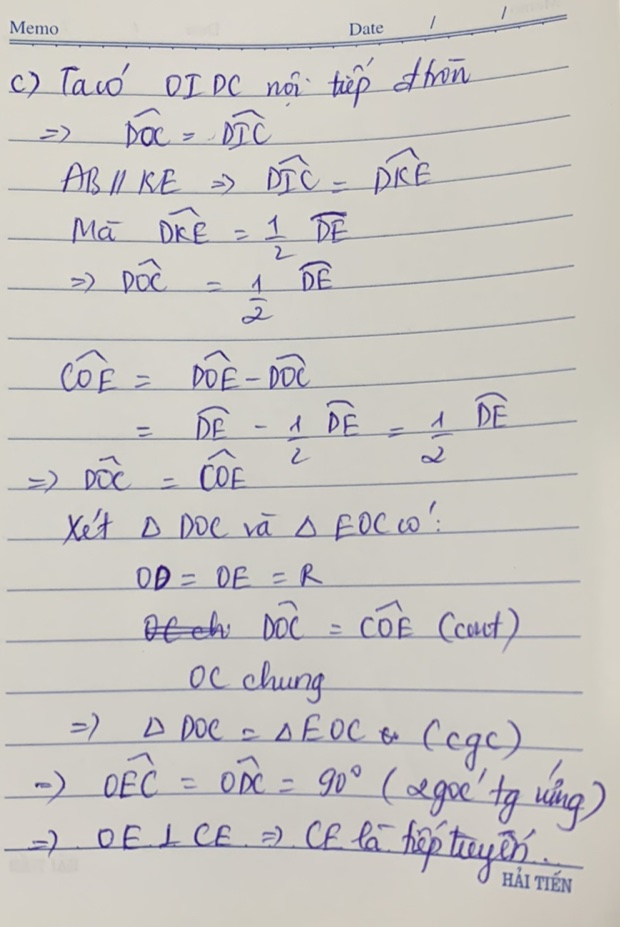 Memo Date / /
c) Ta có OIDC nội tiếp đtròn
=> D̂OC = D̂IC
AB // KE => D̂IC = D̂KE
Mà D̂KE = 1/2 D͡E
=> D̂OC = 1/2 D͡E
ĈOE = D̂OE - D̂OC
= D͡E - 1/2 D͡E = 1/2 D͡E
=> D̂OC = ĈOE
Xét Δ DOC và Δ EOC có:
OD = OE = R
D̂OC = ĈOE (cmt)
OC chung
=> Δ DOC = Δ EOC (cgc)
=> ÔEC = ÔDC = 90° (2 góc tg ứng)
=> OE ⊥ CE => CE là tiếp tuyến.
HẢI TIẾN